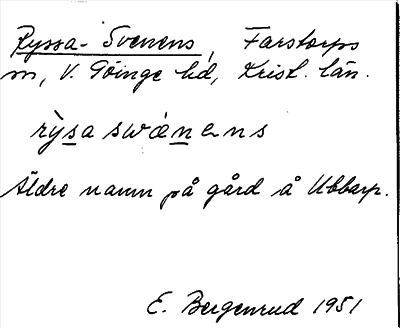 Ryssa-Svenens, Farstorps
sn, V. Göinge hd, Krist. län.
rỳsa swænens
Äldre namn på gård å Ubbarp.
E. Bergenrud 1951